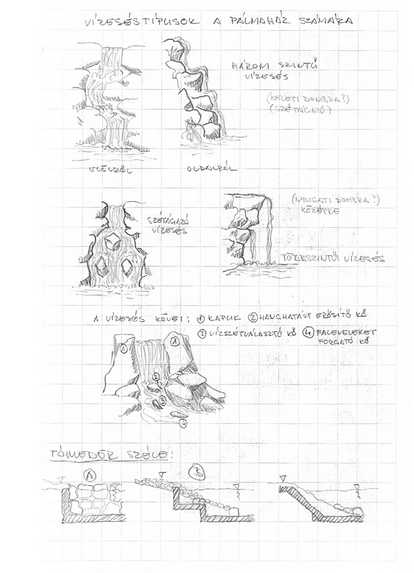 VÍZESÉSTÍPUSOK A PÁLMAHÁZ SZÁMÁRA
HÁROM SZINTŰ
VÍZESÉS
OLDALRÓL
SZÉTÁGAZÓ
VÍZESÉS
(NYUGATI DOMBRA?)
KÖZÉPRE
TÖBBSZINTŰ VÍZESÉS
A VÍZESÉS KÖVEI: ① KAPUK ② HANGHATÁST ERŐSÍTŐ KŐ
③ VÍZSZÉTVÁLASZTÓ KŐ ④ FALEVELEKET
FORGATÓ KŐ
TÓMEDER SZÉLE: